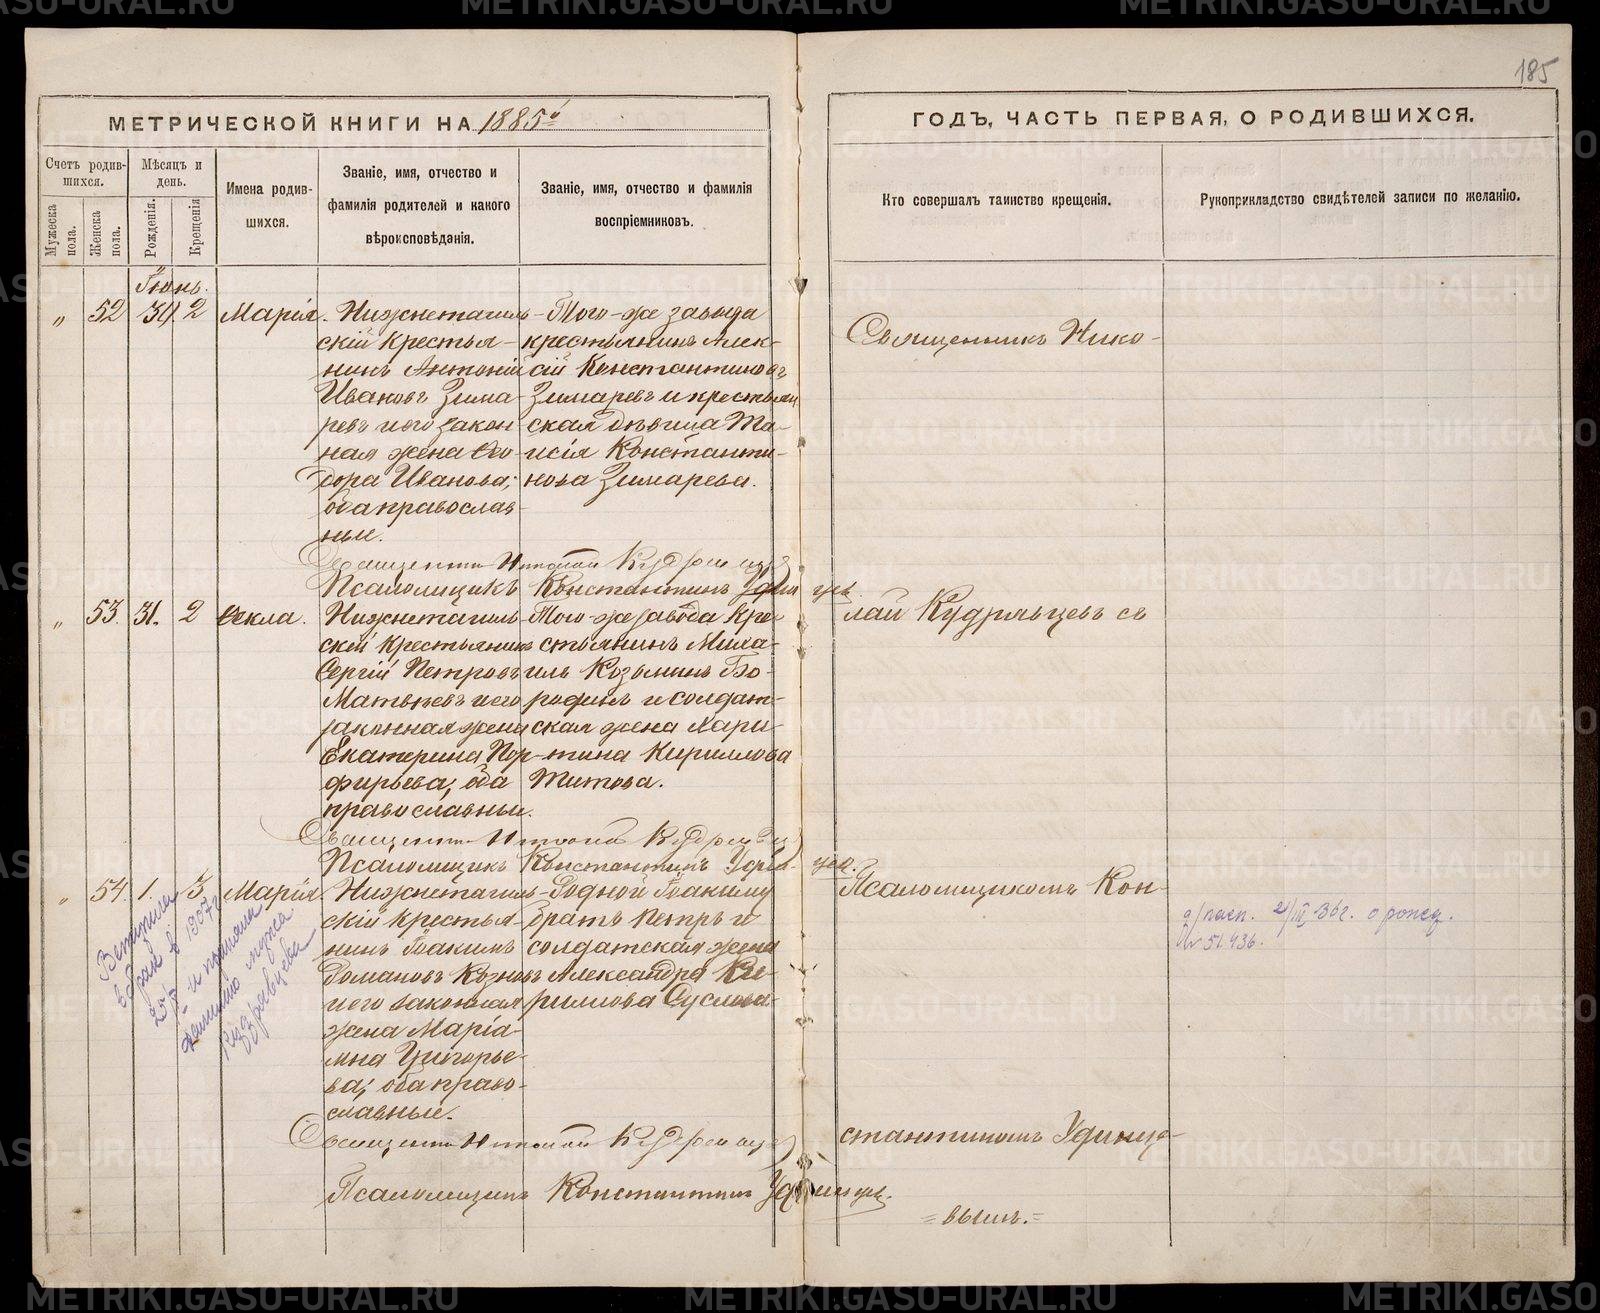 185
МЕТРИЧЕСКОЙ КНИГИ НА 1885й
ГОДЪ, ЧАСТЬ ПЕРВАЯ, О РОДИВШИХСЯ.
Счетъ родив-
шихся.
Мужеска пола.
Женска пола.
Мѣсяцъ и
день.
Рожденія.
Крещенія
Имена родив-
шихся.
Званіе, имя, отчество и
фамилія родителей и какого
вѣроисповѣданія.
Званіе, имя, отчество и фамилія
воспріемниковъ.
Кто совершалъ таинство крещенія.
Рукоприкладство свидѣтелей записи по желанію.
Іюнь.
„ 52 30. 2 Марія.
Нижнетагиль-
скій крестья-
нинъ Антоній
Ивановъ Зима-
ревъ и его закон-
ная жена Ѳео-
дора Иванова;
оба православ-
ные.
Того-же завода
крестьянинъ Алек-
сій Константиновъ
Зимаревъ и крестьян
ская дѣвица Та-
исія Константи-
нова Зимарева.
Священникъ Нико-
Псаломщикъ Константинъ Удинцевъ
„ 53. 31. 2 Ѳекла.
Нижнетагиль-
скій крестьянинъ
Сергій Петровъ
Матвѣевъ и его
законная жена
Екатерина Пор-
фирьева; оба
православные.
Того-же завода кре-
стьянинъ Миха-
илъ Козьминъ Бо-
родинъ и солдат-
ская жена Хари-
тина Кириллова
Титова.
лай Кудрявцевъ съ
Псаломщикъ Константинъ Удинцевъ.
„ 54. 1. 3. Марія.
Нижнетагиль-
скій крестья-
нинъ Іоакимъ
Романовъ Козновъ
и его законная
жена Маріа-
мна Григорье-
ва; оба право-
славные.
Родной Іоакиму
братъ Петръ и
солдатская жена
Александра Ки-
риллова Суслова.
Псаломщикомъ Кон-
Вступила
в брак в 1907 г.
и приняла
фамилию мужа
Кудрявцева
о рожд.
№ 51.436.
стантиномъ Удинце-
Псаломщикъ Константинъ Удинцевъ.
=вымъ.=
METRIKI.GASO-URAL.RU